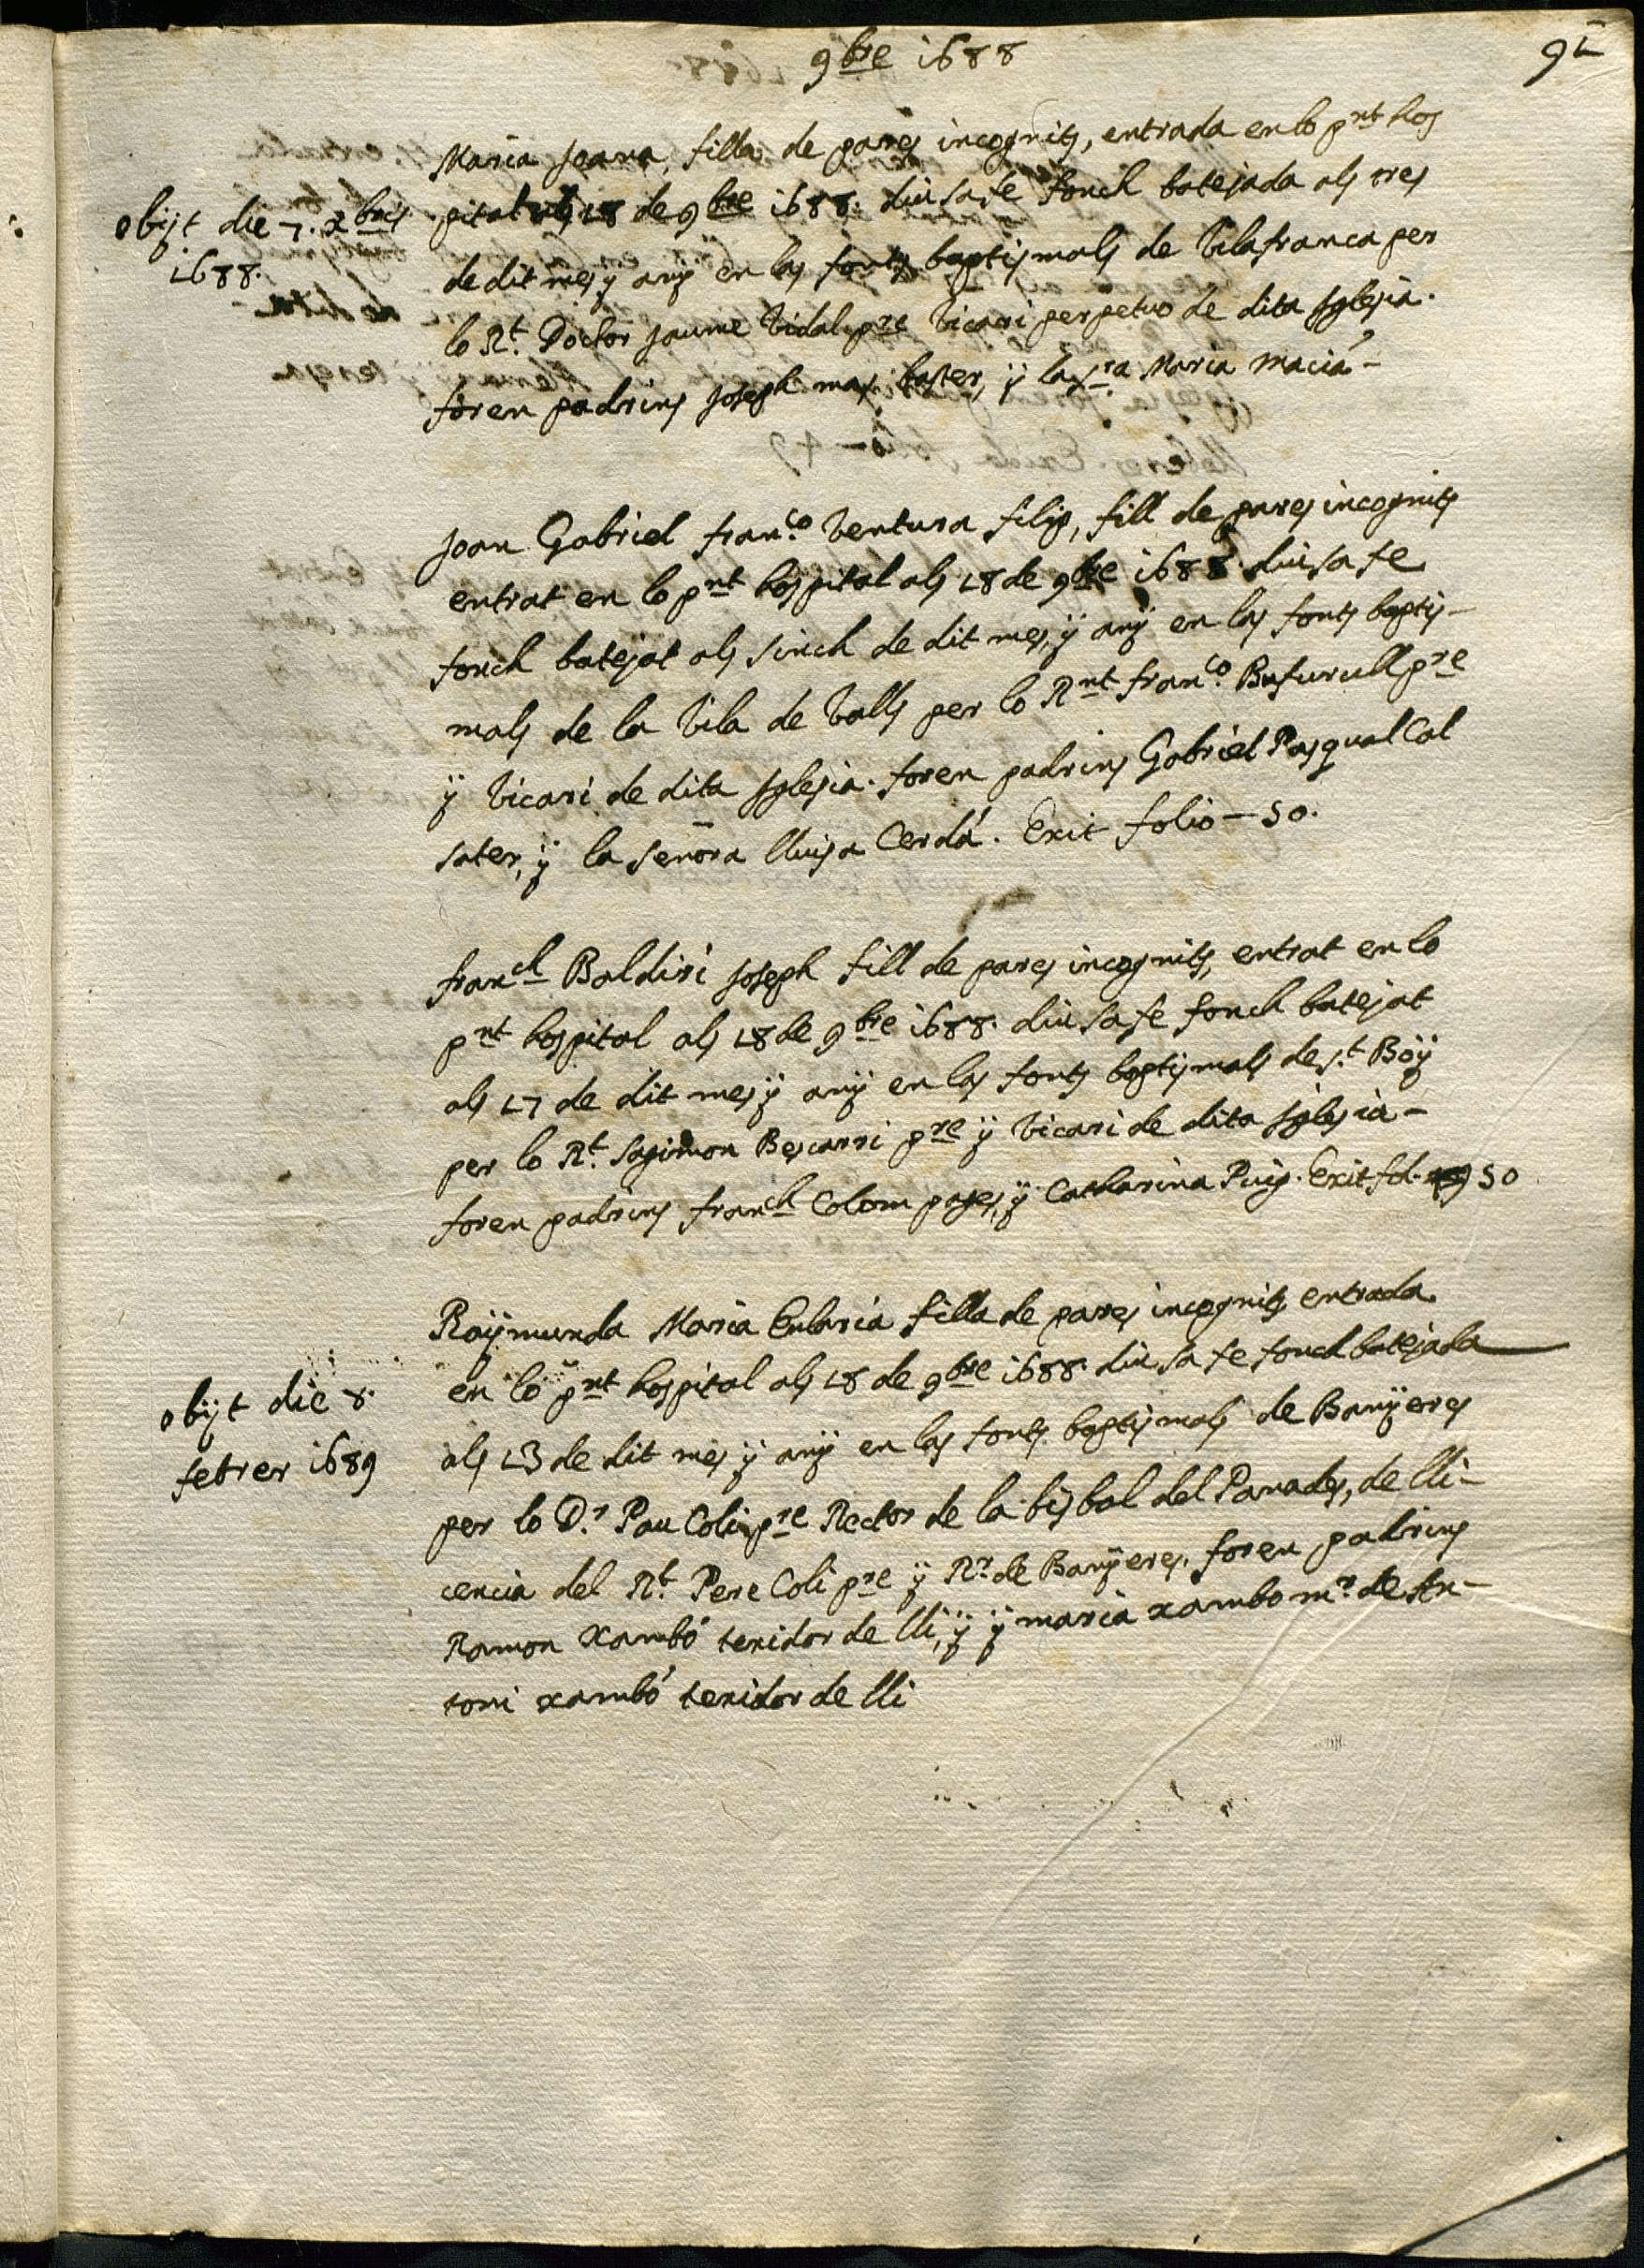 9bre 1688
91
Maria Joana, filla de pares incognits, entrada en lo pnt Hos
pital als 18 de 9bre 1688. diu sa fe fonch batejada als tres
de dit mes y any en las fonts baptismals de Vilafranca per
lo Rt. Doctor Jaume Vidal pre Vicari perpetuo de dita Iglesia.
foren padrins Joseph mas sastre, y la sra Maria Macià-
obijt die 7. xbris
1688.
Joan Gabriel franco. Ventura felip, fill de pares incognits
entrat en lo pnt hospital als 18 de 9bre 1688. diu sa fe
fonch batejat als sinch de dit mes, y any en las fonts baptis-
mals de la Vila de Valls per lo Rnt franco. Bufurull pre
y Vicari de dita Iglesia. foren padrins Gabriel Pasqual Cal
sater, y la señora lluisa Cerdá. Exit folio - 50.
franch Baldiri Joseph fill de pares incognits, entrat en lo
pnt hospital als 18 de 9bre 1688. diu sa fe fonch batejat
als 17 de dit mes y any en las fonts baptismals de st. Boy
per lo Rt. Sagimon Bescarri pre y Vicari de dita Iglesia-
foren padrins franch Colom pages, y Catharina Puig. Exit fol. 50
Raymunda Maria Eularia filla de pares incognits entrada
en lo pnt hospital als 18 de 9bre 1688. diu sa fe fonch batejada
als 13 de dit mes y any en las fonts baptismals de Banyeres
per lo Dr. Pau Coli pre Rector de la bisbal del Panades, de lli-
cencia del Rt. Pere Coli pre y Rr. de Banyeres. foren padrins
Ramon Xambó texidor de lli, y y maria xambo mr. de An-
toni xambó texidor de lli
obijt die 8.
febrer 1689